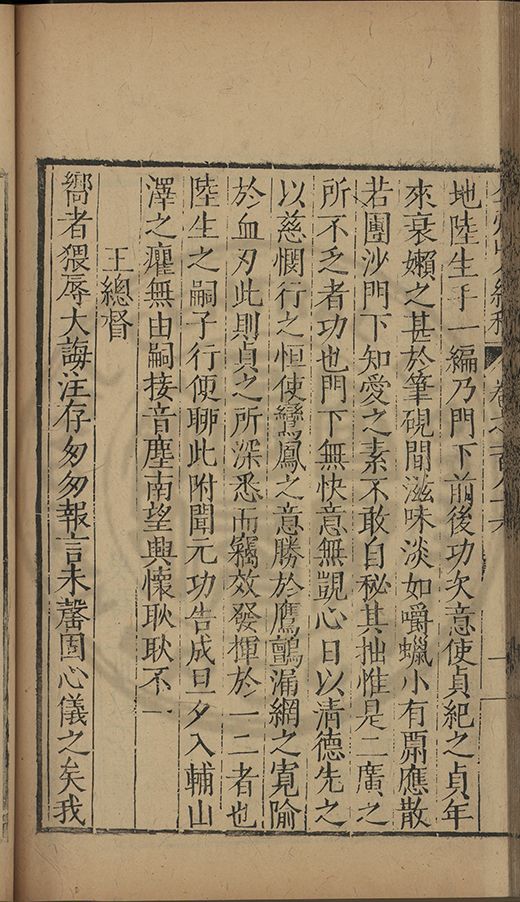 地陸生手一編乃門下前後功次意使貞紀之貞年
來衰嬾之甚於筆硯間滋味淡如嚼蠟小有酬應散
若團沙門下知愛之素不敢自秘其拙惟是二廣之
所不乏者功也門下無快意無覬心日以清德先之
以慈憫行之恒使鸞鳳之意勝於鷹鸇漏網之寬踰
於血刃此則貞之所深悉而竊效發揮於一二者也
陸生之嗣子行便聊此附聞元功告成旦夕入輔山
澤之癯無由嗣接音塵南望興懷耿耿不一
王總督
嚮者猥辱大誨注存匆匆報言未罄固心儀之矣我